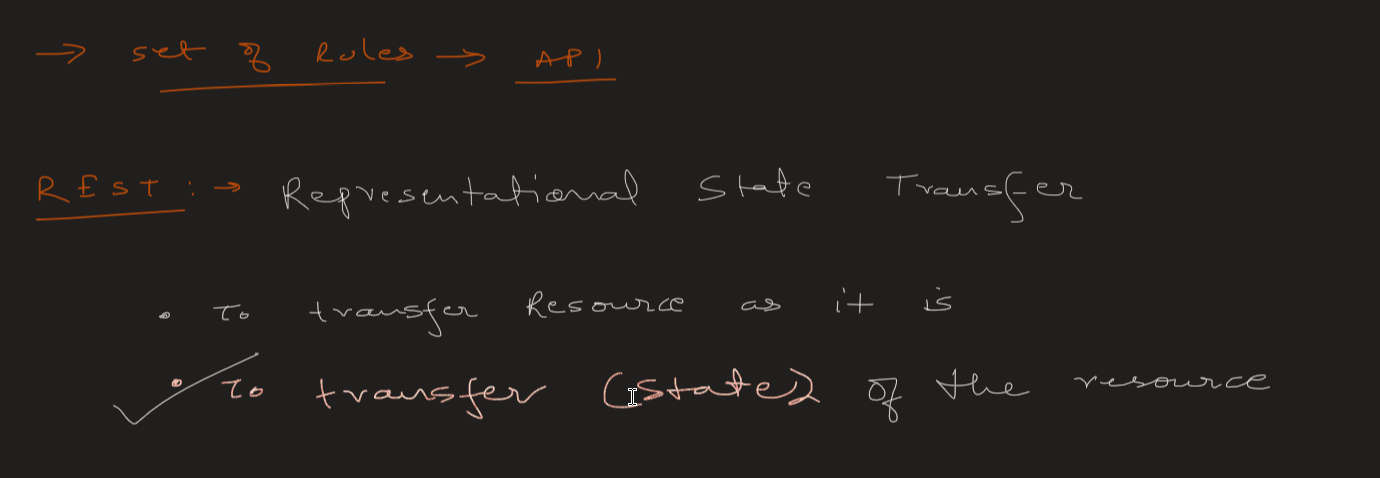 → set of Rules → API
REST :→ Representational State Transfer
• To transfer Resource as it is
• To transfer (state) of the resource